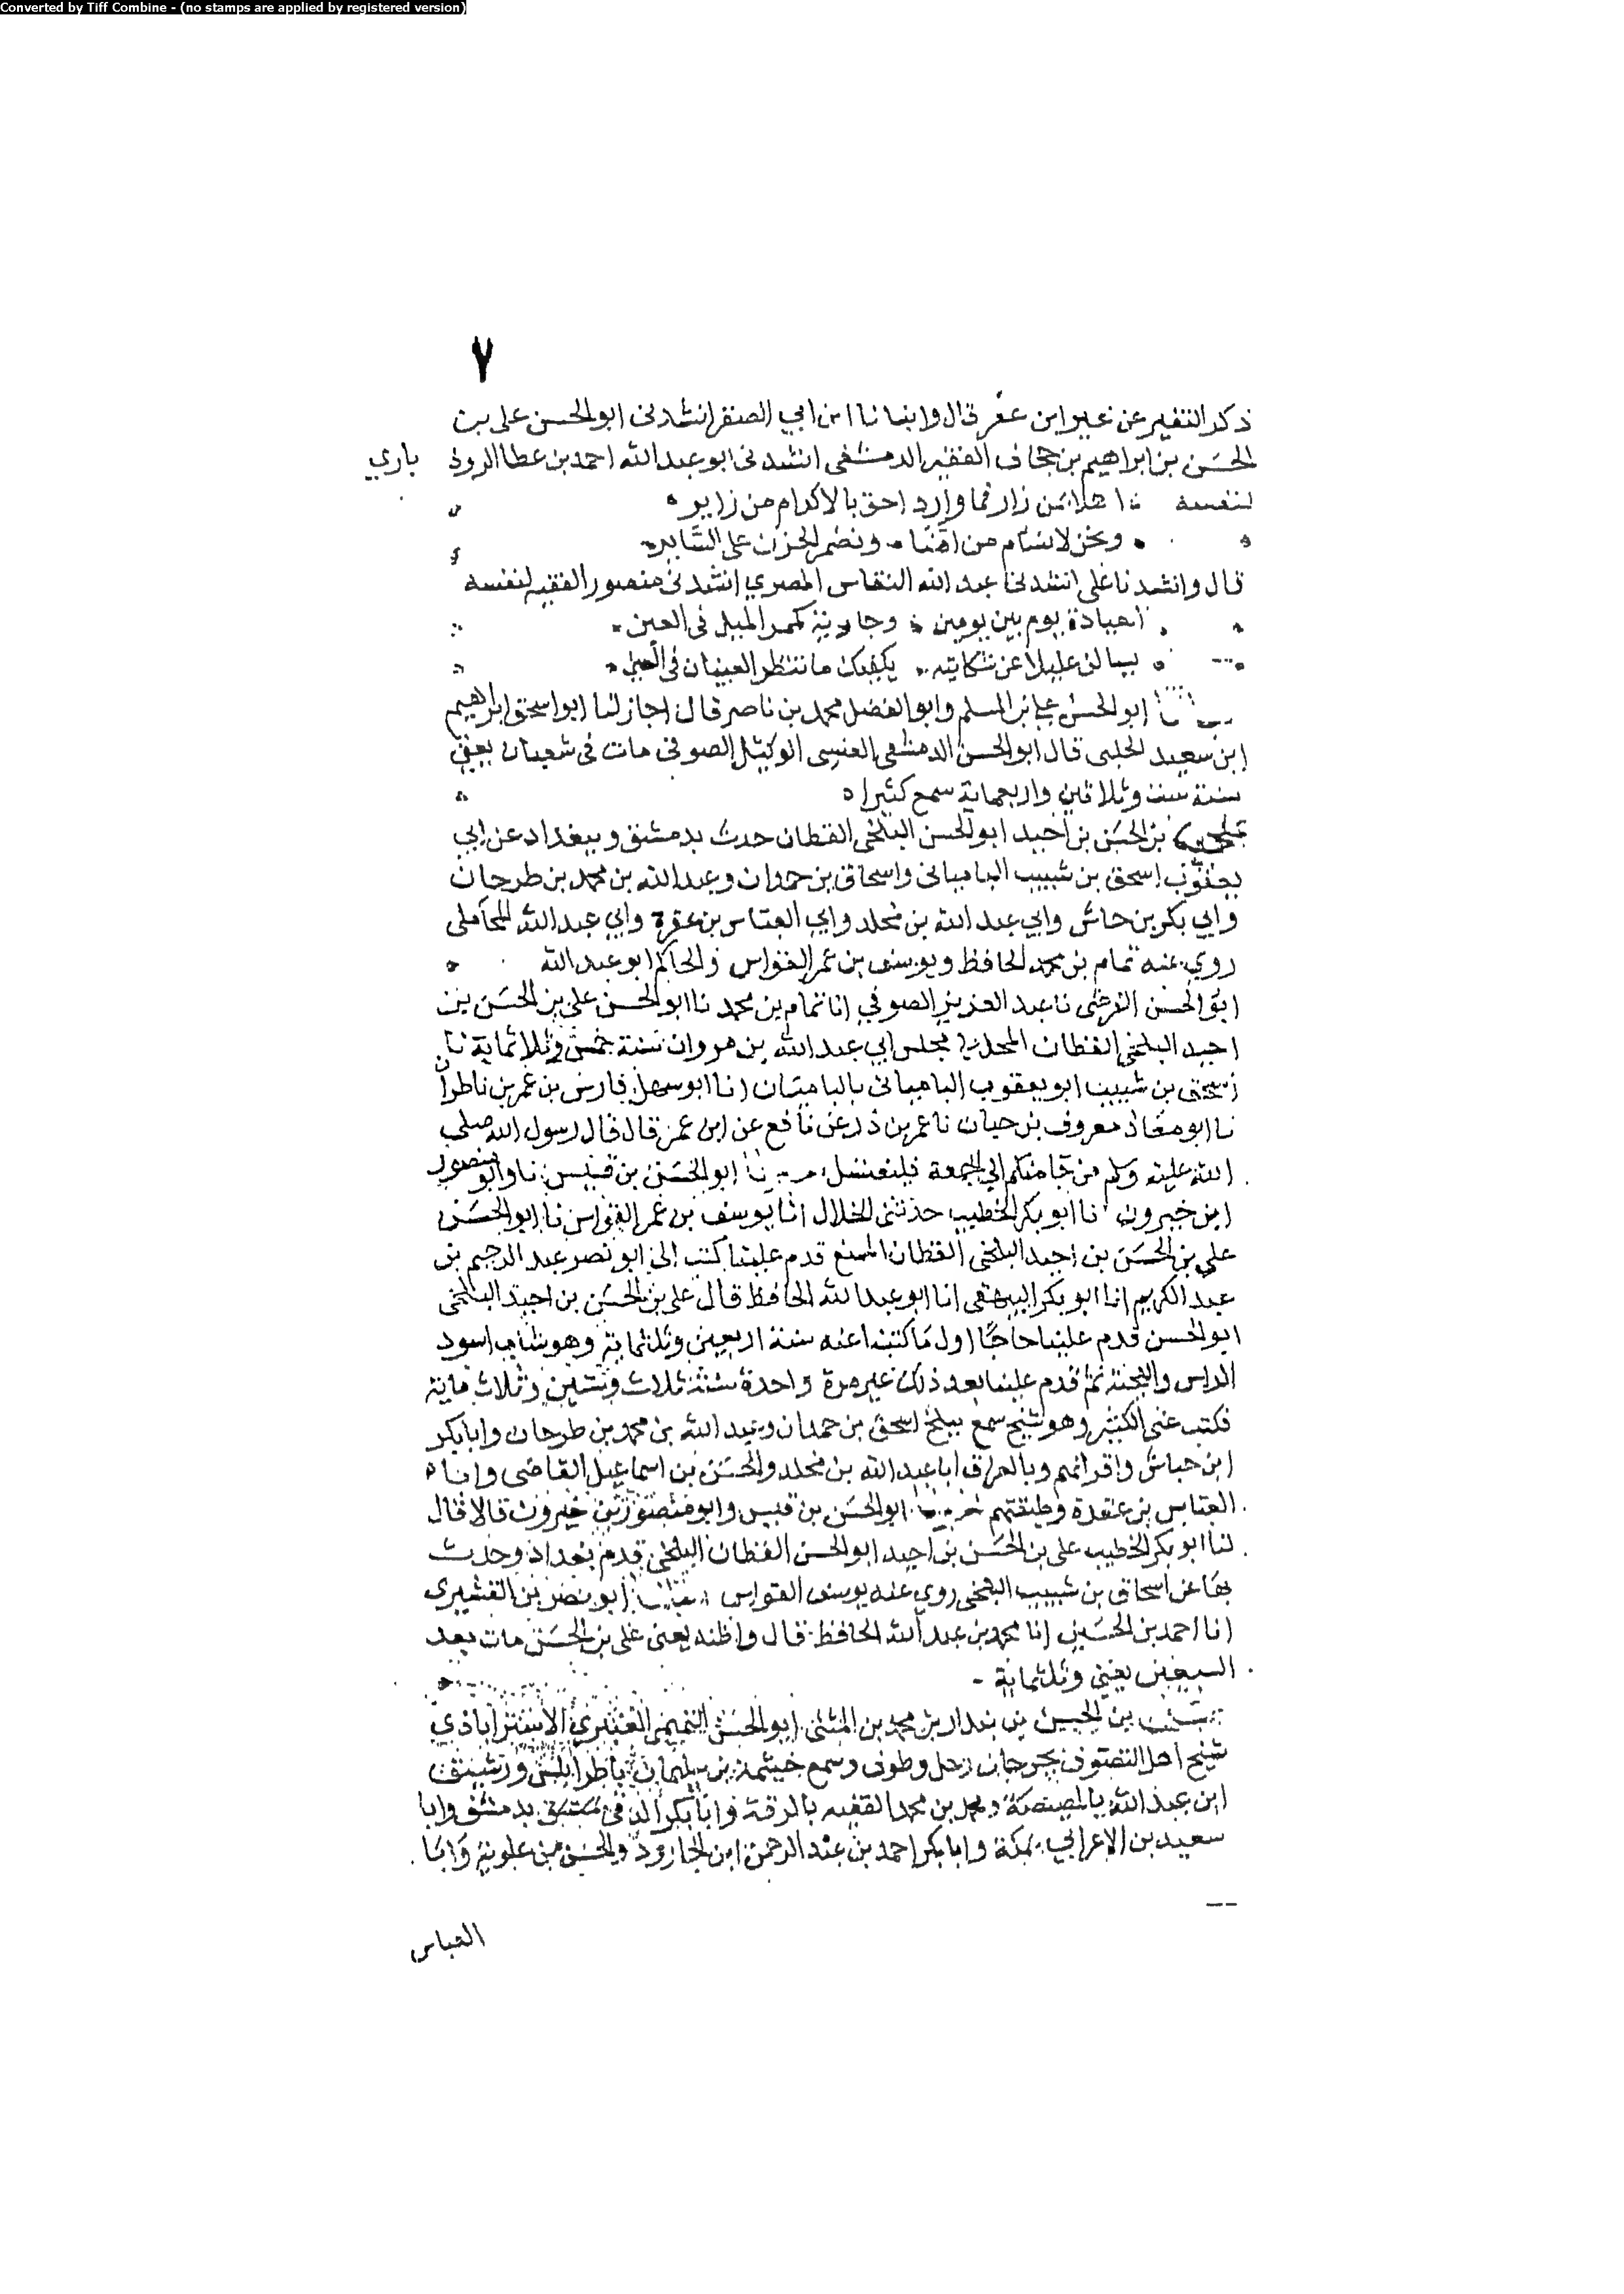 Converted by Tiff Combine - (no stamps are applied by registered version)
٧
ذكر التغير عن غير ابن عقر قال وانبانا ابن ابي الصقر انشدنى ابو الحسن على بن
الحسَن بن ابراهيم بن جحاف الفقيه الدمشقى انشدنى ابو عبد الله احمد بن عطا الروذ باري
لنفسه اهلا بمن زار فما وارد احق بالاكرام من زاير
ونحن لا نسام من امّنا ونضمر الحزن على السّاير
قال وانشدنا على انشدنى عبد الله النقاس المصري انشدنى منصور الفقيه لنفسه
اعيادة يوم بين يومين كمر الميل فى العين
عليلا عن شكايته يكفيك ما تنظر العينان فى
ابو الحسن على بن المسلم وابو الفضل محمد بن ناصر قال اجاز لنا ابو اسحق ابراهيم
ابن سعيد الحلبى قال ابو الحسن الدمشقى العنسى الوكيل الصوفى مات فى شعبان يعنى
سنة ست وثلاثين واربعماية سمع كثيرا
على بن الحسَن بن احيد ابو الحسن البلخى القطان حدث بدمشق وببغداد عن ابي
يعقوب اسحق بن شبيب البامياني واسحاق بن حمدان وعبد الله بن محمد بن طرحان
وابي بكر بن حاش وابي عبد الله بن مخلد وابي العباس بن عقدة وابي عبد الله المحاملى
روي عنه تمام بن محمد الحافظ ويوسف بن عمر القواس والحاكم ابو عبد الله
ابو الحسن الفرضى نا عبد العزيز الصوفي انا تمام بن محمد نا ابو الحسن على بن الحسَن بن
احيد البلخى القطان مجلس ابي عبد الله بن مروان سنة خمس وثلاثماية نا
اسحق بن شبيب ابو يعقوب البامياني بالباميان انا ابو سهل فارس بن عمر بن
نا ابو معاذ معروف بن حيان نا عمر بن ذر عن نافع عن ابن عمر قال قال رسول الله صلى
الله عليه وسلم من جا منكم الي الجمعة فليغتسل ابو الحسَن بن قبيس نا وابو منصور
ابن خيرون انا ابو بكر الخطيب حدثنى الخلال انا يوسف بن عمر القواس نا ابو الحسَن
على بن الحسَن بن احيد البلخى القطان قدم علينا كتب الى ابو نصر عبد الرحيم بن
عبد الكريم انا ابو بكر البيهقى انا ابو عبد الله الحافظ قال على بن الحسَن بن احيد البلخى
ابو الحسن قدم علينا حاجّا اول مَا كتبنا عنه سنة اربعين وثلثماية وهو شاب اسود
الراس واللحية ثم قدم علينا بعد ذلك غير مرة واحدة سنة ثلاث وستين وثلاث ماية
فكتب عنى الكثير وهو شيخ سمع ببلخ اسحق بن حمدان وعبد الله بن محمد بن طرحان وابا بكر
ابن حباش واقرانهم وبالعراق ابا عبد الله بن مخلد والحسَن بن اسماعيل القاضى وابا
العباس بن عقدة وطبقتهم ابو الحسَن بن قبيس وابو منصور بن خيرون قالا قال
لنا ابو بكر الخطيب على بن الحسَن بن احيد ابو الحسن القطان البلخى قدم بغداد وحدث
بها عن اسحاق بن شبيب البلخى روي عنه يوسف القواس ابو نصر بن القشيري
انا احمد بن الحسَين انا محمد بن عبد الله الحافظ قال واظنه يعنى على بن الحسَن مات بعد
يعنى وثلثماية
بن الحسن بن بندار بن محمد بن المثنى ابو الحسَن التميمى العنبري الاستراباذي
شيخ اهل التصوف بجرجان رحل وطوف وسمع خيثمة بن سليمان باطرابلس
ابن عبد الله بالمصيصة ومحمد بن محمد الفقيه بالرقة وابا بكر الدقى بدمشق وابا
سعيد بن الاعرابي بمكة وابا بكر احمد بن عبد الرحمن ابن الجارود والحسَن بن علوية وَابَا
العباس